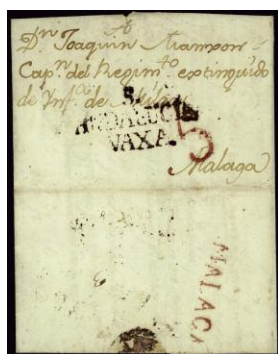 A
Dn Joaquin
Capn del Regimto extinguido
de Infa de
8.
ANDALUCIA
VAXA.
5
Malaga
MALAGA